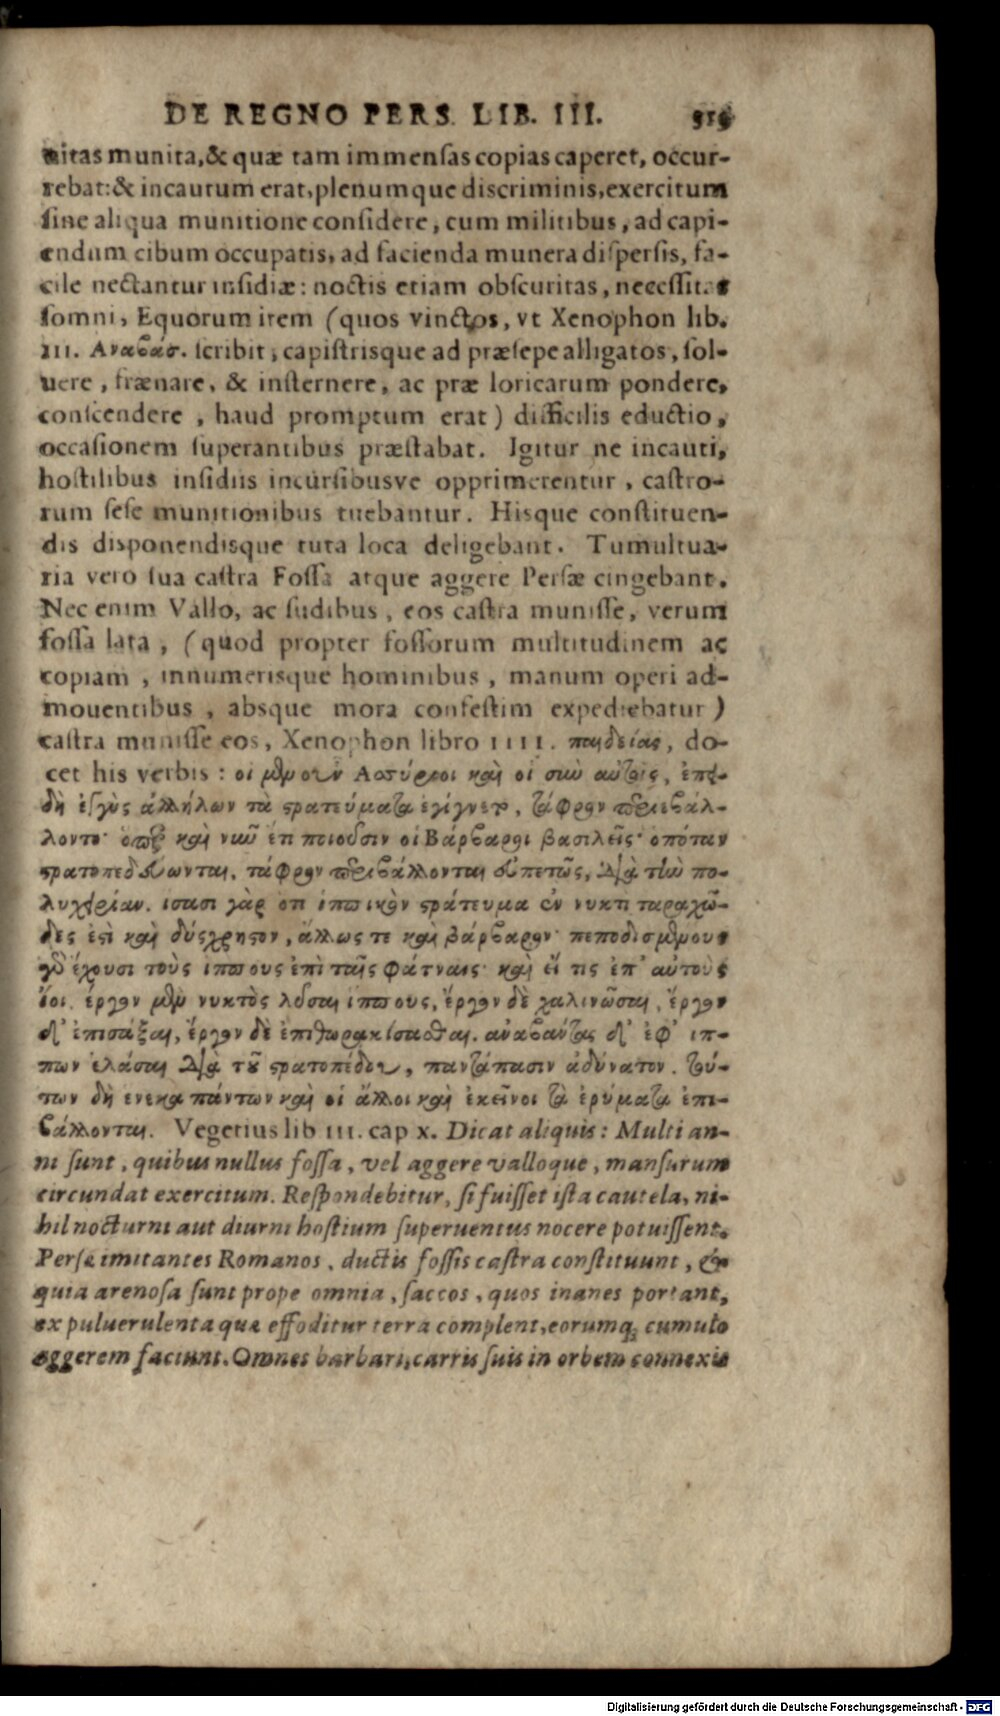 DE REGNO PERS. LIB. III. 
nitas munita,& quæ tam immensas copias caperet, occur-
rebat:& incautum erat, plenumque discriminis, exercitum
sine aliqua munitione considere, cum militibus, ad capi-
endum cibum occupatis, ad facienda munera dispersis, fa-
cile nectantur insidiæ: noctis etiam obscuritas, necessitas
somni, Equorum item (quos vinctos, vt Xenophon lib.
III. Αναβάσ. scribit, capistrisque ad præsepe alligatos, sol-
uere, frænare, & insternere, ac præ loricarum pondere,
conscendere, haud promptum erat) difficilis eductio,
occasionem superantibus præstabat. Igitur ne incauti,
hostilibus insidiis incursibusve opprimerentur, castro-
rum sese munitionibus tuebantur. Hisque constituen-
dis disponendisque tuta loca deligebant. Tumultua-
ria vero sua castra Fossa atque aggere Persæ cingebant.
Nec enim Vallo, ac sudibus, eos castra munisse, verum
fossa lata, (quod propter fossorum multitudinem ac
copiam, innumerisque hominibus, manum operi ad-
mouentibus, absque mora confestim expediebatur)
castra munisse eos, Xenophon libro IIII. παιδείας, do-
cet his verbis: οἱ μὲν οὖν Ασσύριοι καὶ οἱ σὺν αὐτοῖς, ἐπει-
δὴ ἐγγὺς ἀλλήλων τὰ στρατεύματα ἐγίγνετο, τάφρον περιεβάλ-
λοντο· ὅπερ καὶ νῦν ἔτι ποιοῦσιν οἱ Βάρβαροι βασιλεῖς· ὁπόταν
στρατοπεδεύωνται, τάφρον περιβάλλονται εὐπετῶς, διὰ τὴν πο-
λυχειρίαν. ἴσασι γὰρ ὅτι ἱππικὸν στράτευμα ἐν νυκτὶ ταραχῶ-
δές ἐστι καὶ δύσχρηστον, ἄλλως τε καὶ βάρβαρον· πεποδισμένους
γὰρ ἔχουσι τοὺς ἵππους ἐπὶ ταῖς φάτναις· καὶ εἴ τις ἐπ' αὐτοὺς
ἴοι, ἔργον μὲν νυκτὸς λῦσαι ἵππους, ἔργον δὲ χαλινῶσαι, ἔργον
δ' ἐπισάξαι, ἔργον δὲ ἐπιθωρακίσασθαι. ἀναβάντας δ' ἐφ' ἵπ-
πων ἐλάσαι διὰ τοῦ στρατοπέδου, παντάπασιν ἀδύνατον. τού-
των δὴ ἕνεκα πάντων καὶ οἱ ἄλλοι καὶ ἐκεῖνοι τὰ ἐρύματα ἐπι-
βάλλονται. Vegetius lib III. cap X. Dicat aliquis: Multi an-
ni sunt, quibus nullus fossa, vel aggere valloque, mansurum
circundat exercitum. Respondebitur, si fuisset ista cautela, ni-
hil nocturni aut diurni hostium superuentus nocere potuissent.
Persæ imitantes Romanos, ductis fossis castra constituunt, &
quia arenosa sunt prope omnia, saccos, quos inanes portant,
ex puluerulenta quæ effoditur terra complent, eorumq; cumulo
aggerem faciunt. Omnes barbari, carris suis in orbem connexis
Digitalisierung gefördert durch die Deutsche Forschungsgemeinschaft - DFG